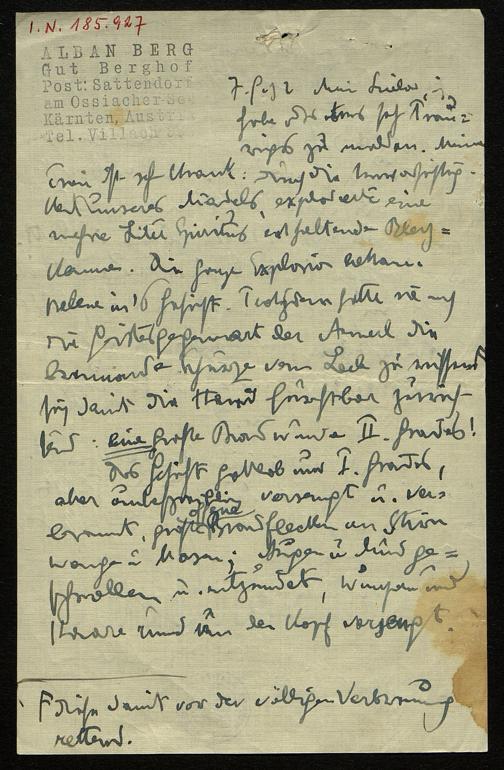 I.N. 185.927
ALBAN BERG
Gut Berghof
Post: Sattendorf
am Ossiacher-See
Kärnten, Austria
Tel. Villach
Mein Lieber, ich
habe sehr Trau=
riges zu melden. Meine
Frau ist sehr krank: durch die Unvorsichtig-
keit unseres Mädels explodierte eine
mehre Liter Spiritus enthaltende Blech=
kanne. Die ganze Explosion bekam
Helene in's Gesicht. Trotzdem hatte sie noch
die Geistesgegenwart der Anneml die
brennende Schürze vom Leib zu reissen F
sich damit die Hand furchtbar zurich-
tend: eine große Brandwunde II. Grades!
Das Gesicht gottlob nur I. Grades,
aber versengt u. ver=
brannt, große offene Brandflecken an Stirn
Wange u Nasen; Augen u Mund ge=
schwollen u. entzündet, Wimpern und
Haare rund um den Kopf versengt.
F diese damit vor der völligen Verbrennung
rettend.